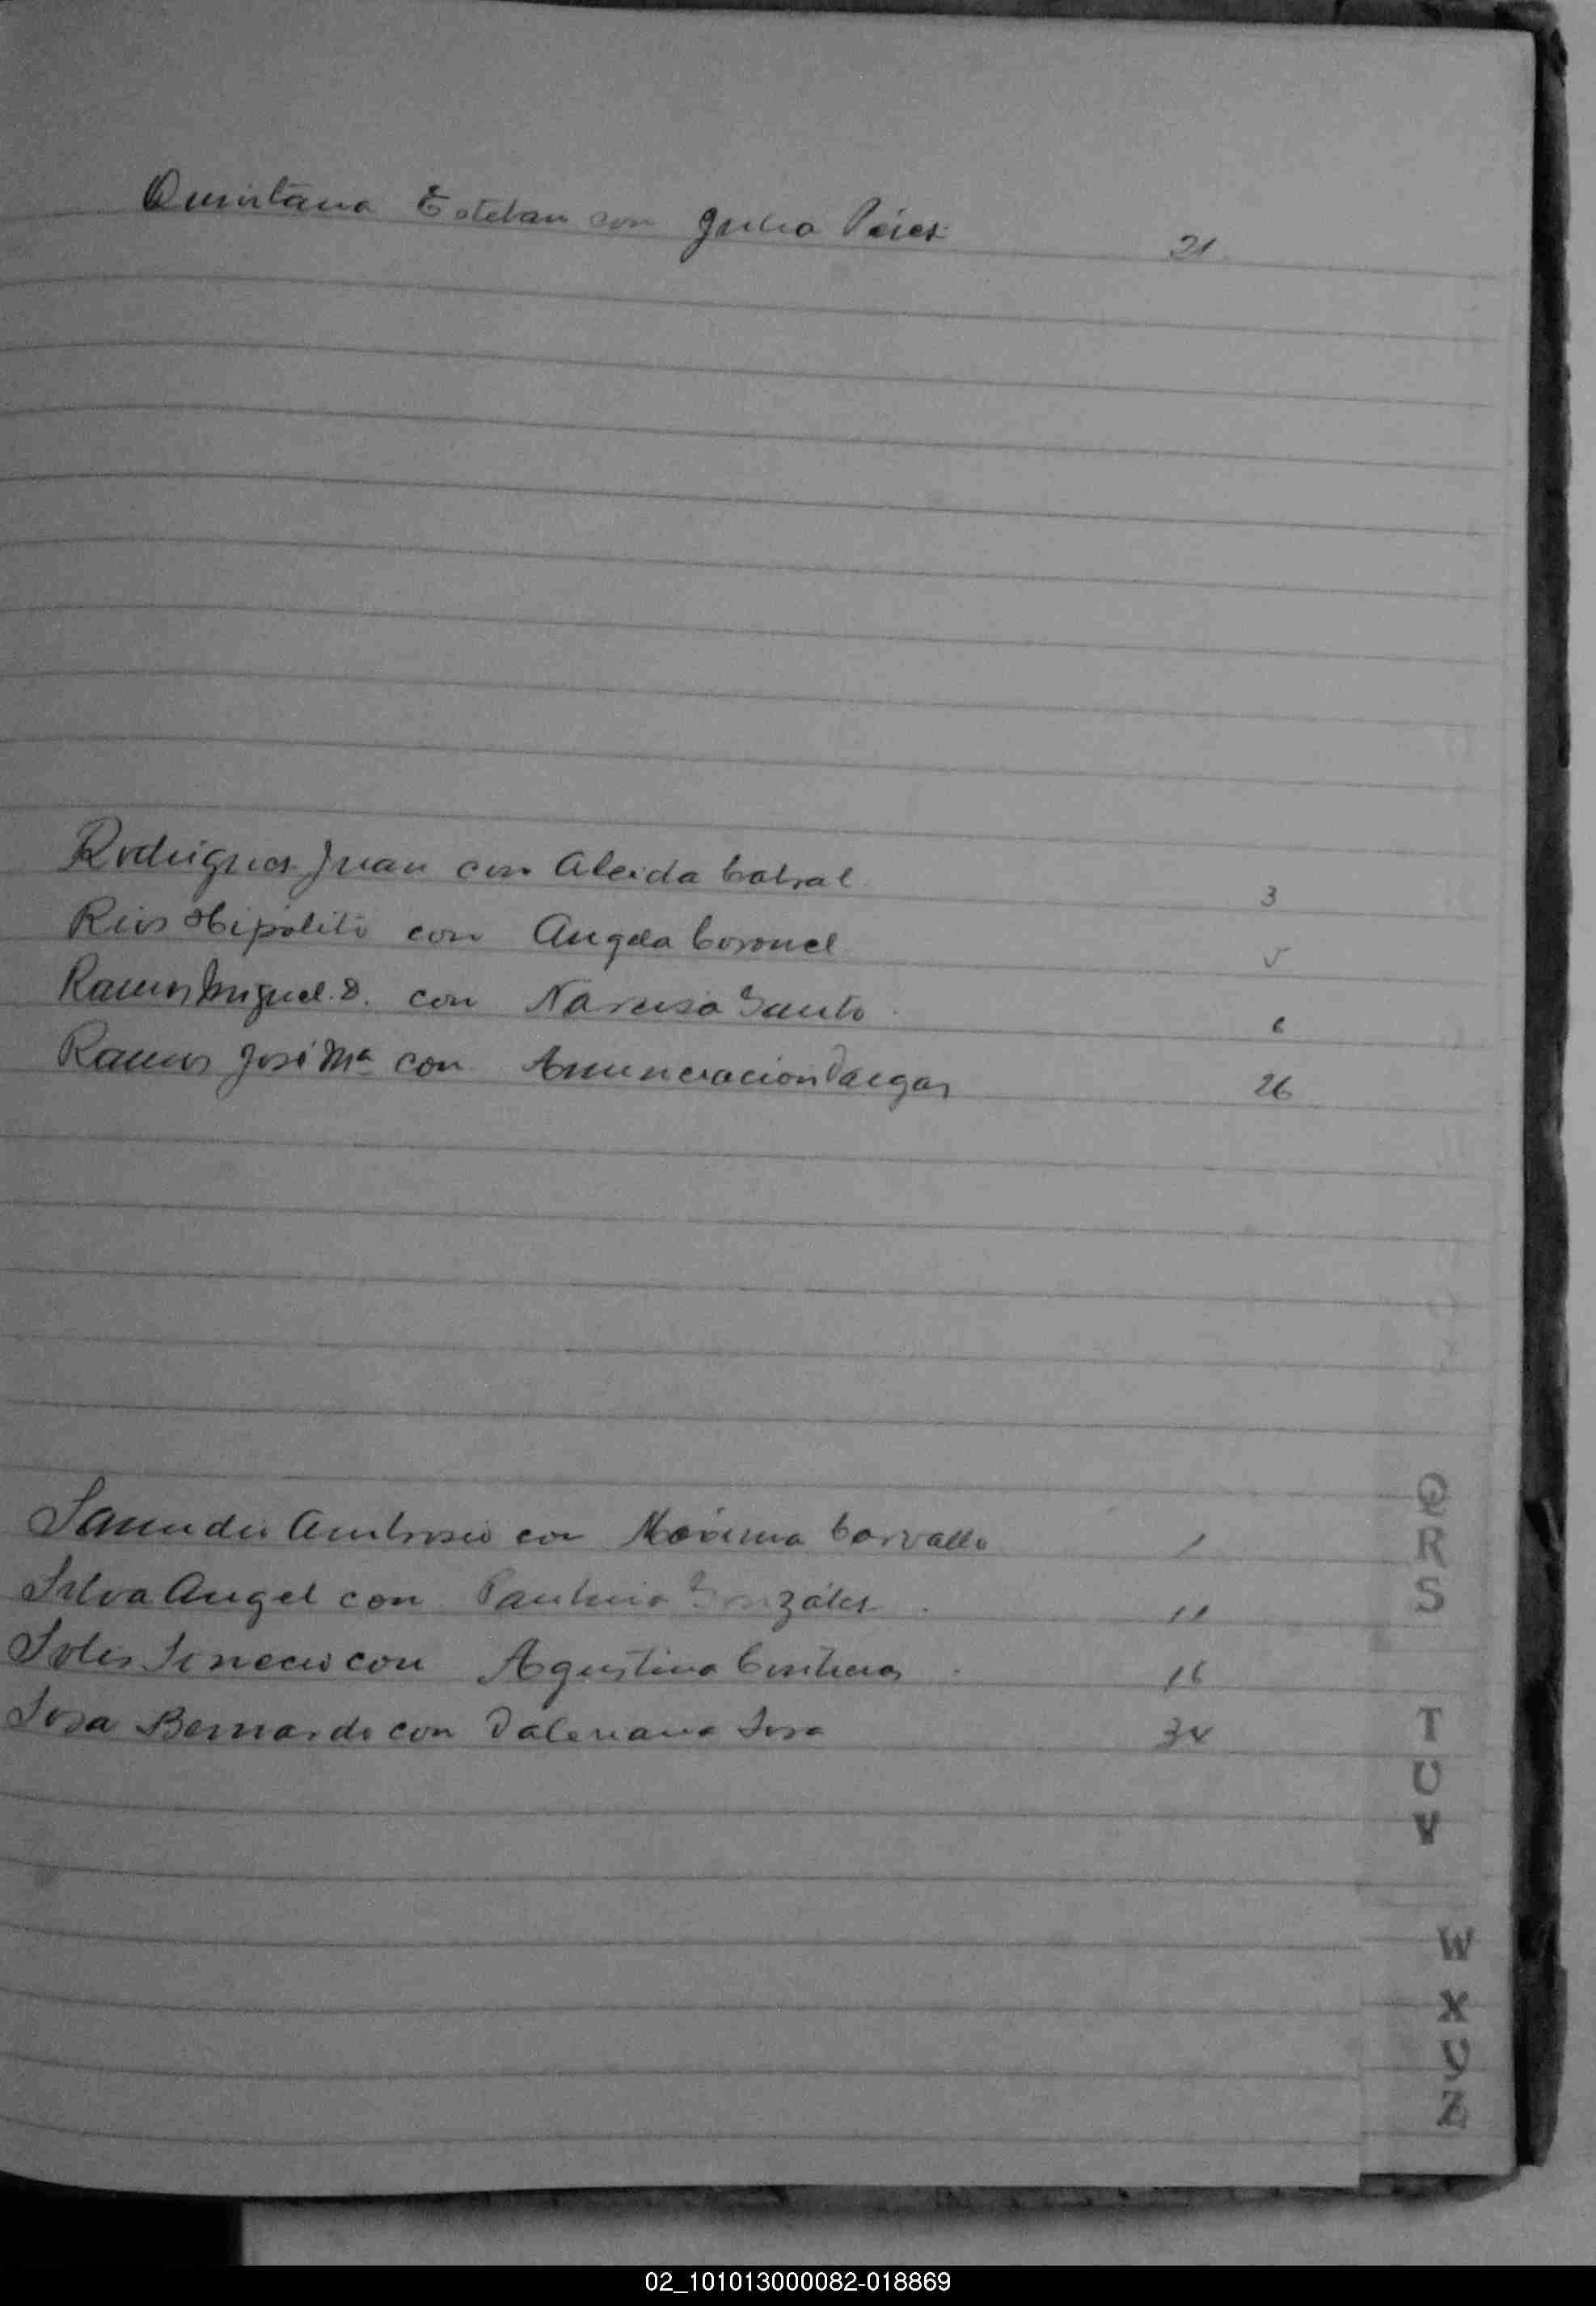 Quintana Esteban con Julia Pérez 21
Rodriguez Juan con Aleida Cabral 3
Rios Hipólito con Angela Coronel 5
Ramos Miguel D. con Narcisa Santo 6
Ramos José Ma con Anunciacion Vargas 26
Ambrosio con Máxima Carvallo 1
Silva Angel con Paulina González 11
Solis con Agustina Contreras 16
Sosa Bernardo con Valeriana Sosa 34
Q
R
S
T
U
V
W
X
Y
Z
02_101013000082-018869